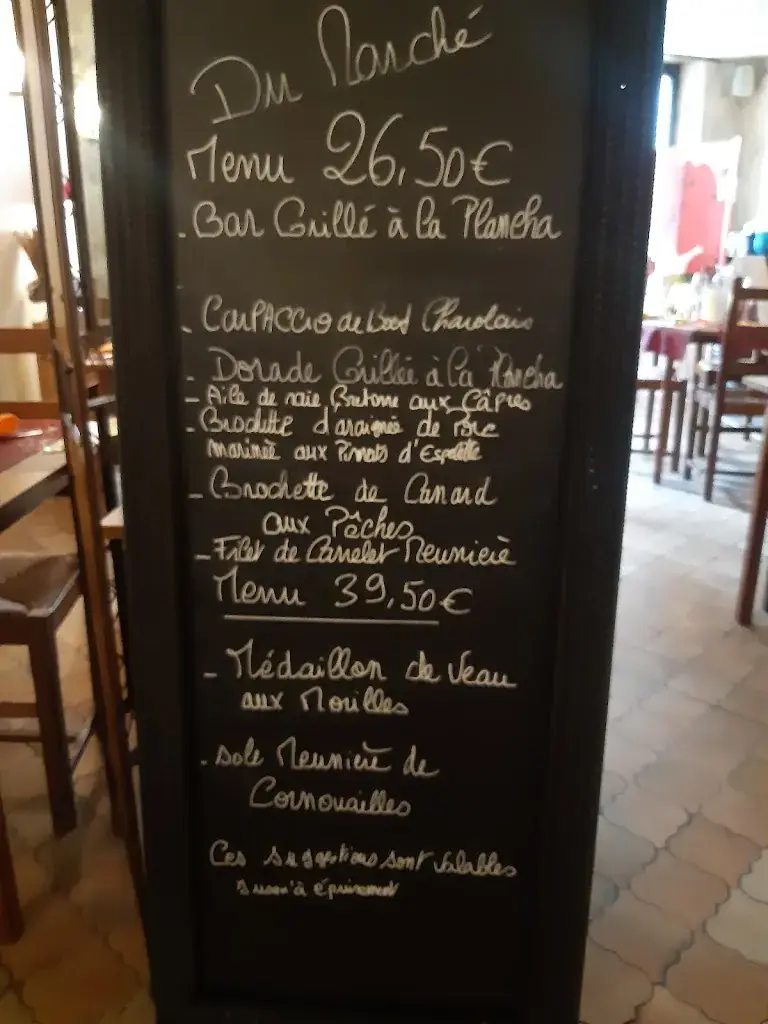 Du Marché
Menu 26,50€
. Bar Grillé à la Plancha
- CarPACCio de Boeuf Charolais
- Dorade Grillée à la Plancha
- Aile de raie Bretonne aux Câpres
- Brochette d'araignée de Porc
marinée aux Piments d'Espelette
- Brochette de Canard
aux Pêches
- Filet de Carrelet Meunière
Menu 39,50€
- Médaillon de Veau
aux Morilles
. Sole Meunière de
Cornouailles
Ces suggestions sont valables
Jusqu'à épuisement